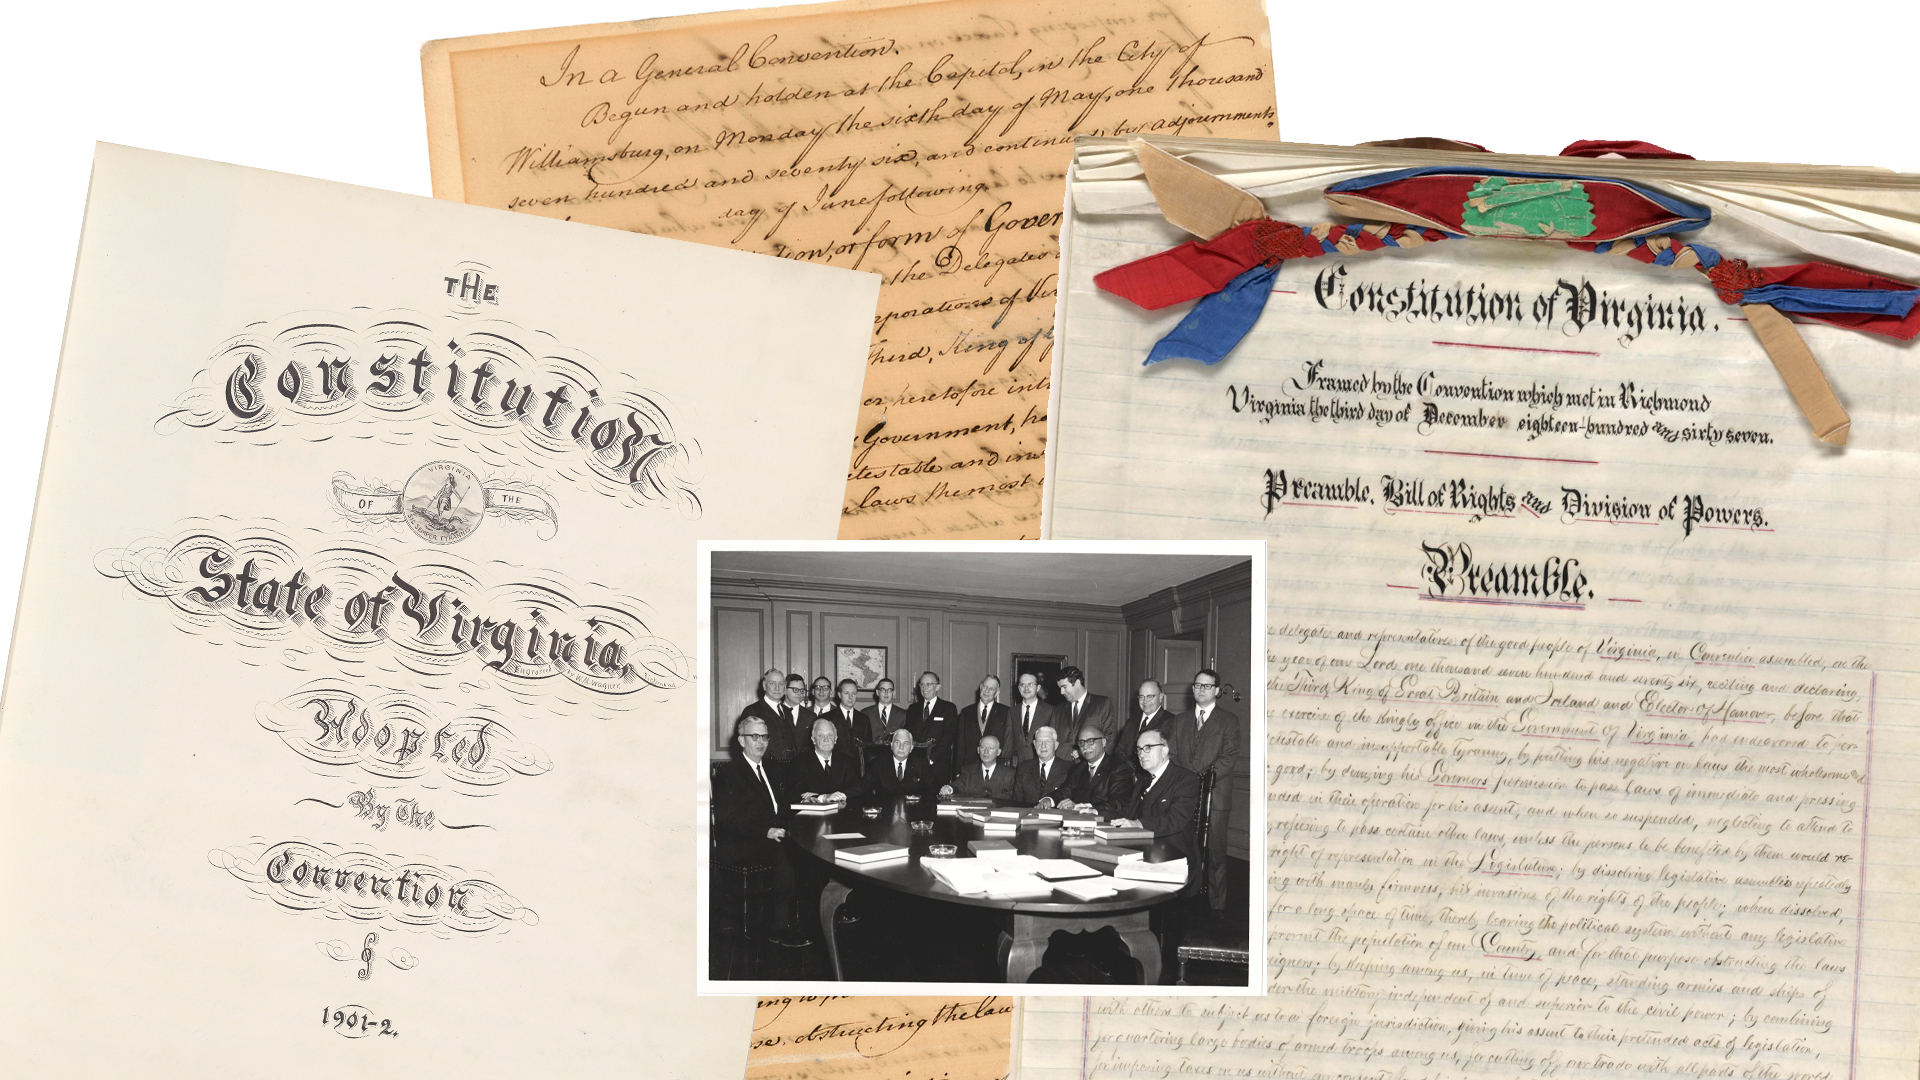 In a General Convention.
Begun and holden at the Capitol, in the City of
Williamsburg, on Monday the sixth day of May, one thousand
seven hundred and seventy six, and continued by adjournments
day of June following.
or form of Gover
the Delegates
porations of Vir
Third, King of G
er, heretofore int
Government, ha
etestable and ins
laws the most
ing to
se, obstructing the law
THE
Constitution
VIRGINIA
OF THE
SIC SEMPER TYRANNIS
State of Virginia,
Engraved by W. H. Wagner Richmond
Adopted
By The
Convention
of
1901-2.
Constitution of Virginia.
Framed by the Convention which met in Richmond
Virginia the third day of December eighteen-hundred and sixty seven.
Preamble, Bill of Rights and Division of Powers.
Preamble.
delegates and representatives of the good people of Virginia, in Convention assembled, on the
year of our Lord one thousand seven hundred and seventy six, reciting and declaring,
the Third, King of Great Britain and Ireland and Elector of Hanover, before that
exercise of the Kingly office in the Government of Virginia, had endeavored to per-
detestable and insupportable tyranny, by putting his negative on laws the most wholesome and
good; by denying his Governors permission to pass laws of immediate and pressing
in their operation for his assent, and when so suspended, neglecting to attend to
refusing to pass certain other laws, unless the persons to be benefited by them would re-
right of representation in the Legislature; by dissolving legislative assemblies repeatedly
with manly firmness, his invasions of the rights of the people; when dissolved,
for a long space of time, thereby leaving the political system without any legislative
prevent the population of our Country, and for that purpose obstructing the laws
eigners; by keeping among us, in time of peace, standing armies and ships of
der the military independent of and superior to the civil power; by combining
with others to subject us to a foreign jurisdiction, giving his assent to their pretended acts of legislation,
for quartering large bodies of armed troops among us, for cutting off our trade with all parts of the world,
for imposing taxes on us without our consent